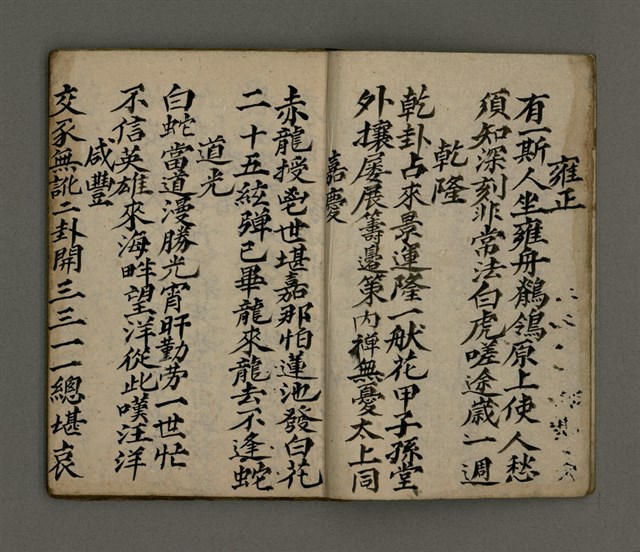 雍正
有一斯人坐雍丹鶺鴒原上使人愁
須知深刻非常法白虎嗟途歲一週
乾隆
乾卦占來景運隆一般花甲子孫堂
外攘屡展籌邊策內禅無憂太上同
嘉慶
赤龍授世堪嘉那怕蓮池發白花
二十五絃弹已畢龍來龍去不逢蛇
道光
白蛇當道漫勝光宵旰勤劳一世忙
不信英雄來海畔望洋從此嘆汪洋
咸豐
交豕無訛二卦開三三一一總堪哀